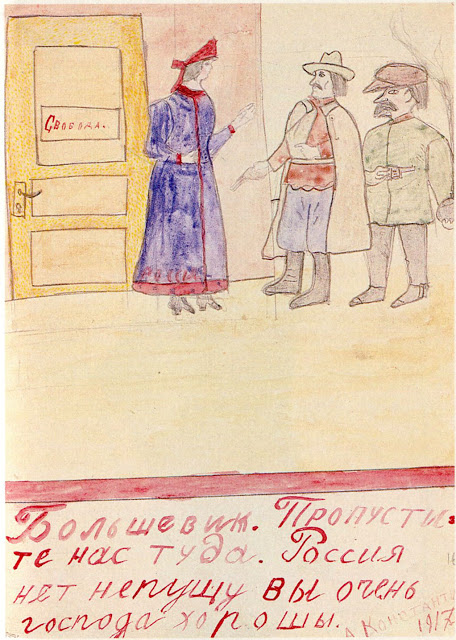 Свобода.
Россия
Большевик. Пропусти-
те нас туда. Россия
нет непущу вы очень
господа хорошы.
1917